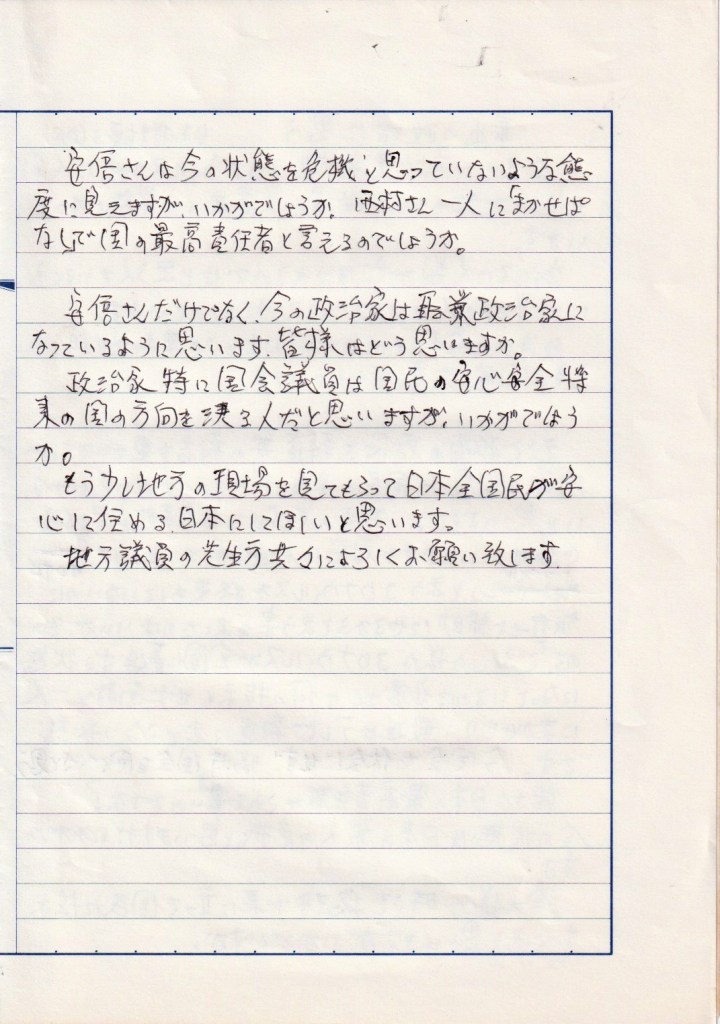 安倍さんは今の状態を危機と思っていないような態
度に見えますが、いかがでしょうか。西村さん一人にまかせぱ
なしで国の最高責任者と言えるのでしょうか。
安倍さんだけでなく、今の政治家は職業政治家に
なっているように思います。皆様はどう思いますか。
政治家特に国会議員は国民の安心安全将
来の国の方向を決る人だと思いますが、いかがでしょう
か。
もう少し地方の現場を見てもらって日本全国民が安
心して住める日本にしてほしいと思います。
地方議員の先生方共々によろしくお願い致します。